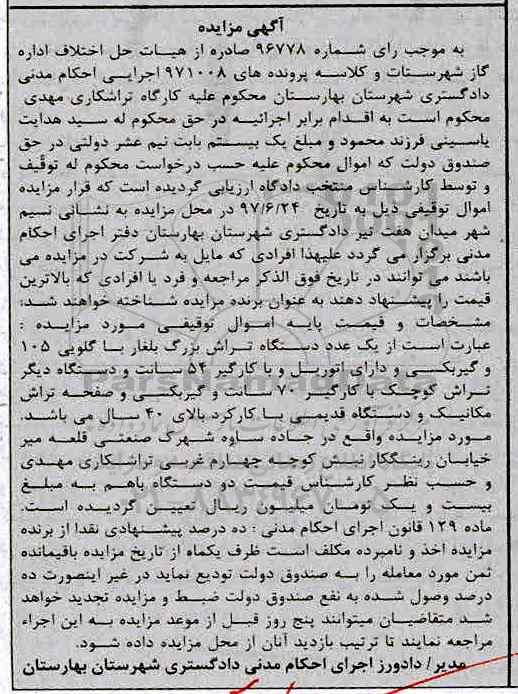 آگهی مزایده
به موجب رای شماره ۹۶۷۷۸ صادره از هیات حل اختلاف اداره
گاز شهرستات و کلاسه پرونده های ۹۷۱۰۰۸ اجرایی احکام مدنی
دادگستری شهرستان بهارستان محکوم علیه کارگاه تراشکاری مهدی
محکوم است به اقدام برابر اجرائیه در حق محکوم له سید هدایت
یاسینی فرزند محمود و مبلغ یک بیستم بابت نیم عشر دولتی در حق
صندوق دولت که اموال محکوم علیه حسب درخواست محکوم له توقیف
و توسط کارشناس منتخب دادگاه ارزیابی گردیده است که قرار مزایده
اموال توقیفی ذیل به تاریخ ۹۷/۶/۲۴ در محل مزایده به نشانی نسیم
شهر میدان هفت تیر دادگستری شهرستان بهارستان دفتر اجرای احکام
مدنی برگزار می گردد علیهذا افرادی که مایل به شرکت در مزایده می
باشند می توانند در تاریخ فوق الذکر مراجعه و فرد یا افرادی که بالاترین
قیمت را پیشنهاد دهند به عنوان برنده مزایده شناخته خواهند شد:
مشخصات و قیمت پایه اموال توقیفی مورد مزایده :
عبارت است از یک عدد دستگاه تراش بزرگ بلغار با گلویی ۱۰۵
و گیربکسی و دارای اتوریل و با کارگیر ۵۴ سانت و دستگاه دیگر
تراش کوچک با کارگیر ۷۰ سانت و گیربکسی و صفحه تراش
مکانیک و دستگاه قدیمی با کارکرد بالای ۴۰ سال می باشد.
مورد مزایده واقع در جاده ساوه شهرک صنعتی قلعه میر
خیابان رینگکار نبش کوچه چهارم غربی تراشکاری مهدی
و حسب نظر کارشناس قیمت دو دستگاه باهم به مبلغ
بیست و یک تومان میلیون ریال تعیین گردیده است.
ماده ۱۲۹ قانون اجرای احکام مدنی : ده درصد پیشنهادی نقدا از برنده
مزایده اخذ و نامبرده مکلف است ظرف یکماه از تاریخ مزایده باقیمانده
ثمن مورد معامله را به صندوق دولت تودیع نماید در غیر اینصورت ده
درصد وصول شده به نفع صندوق دولت ضبط و مزایده تجدید خواهد
شد متقاضیان میتوانند پنج روز قبل از موعد مزایده به این اجراء
مراجعه نمایند تا ترتیب بازدید آنان از محل مزایده داده شود.
مدیر/ دادورز اجرای احکام مدنی دادگستری شهرستان بهارستان